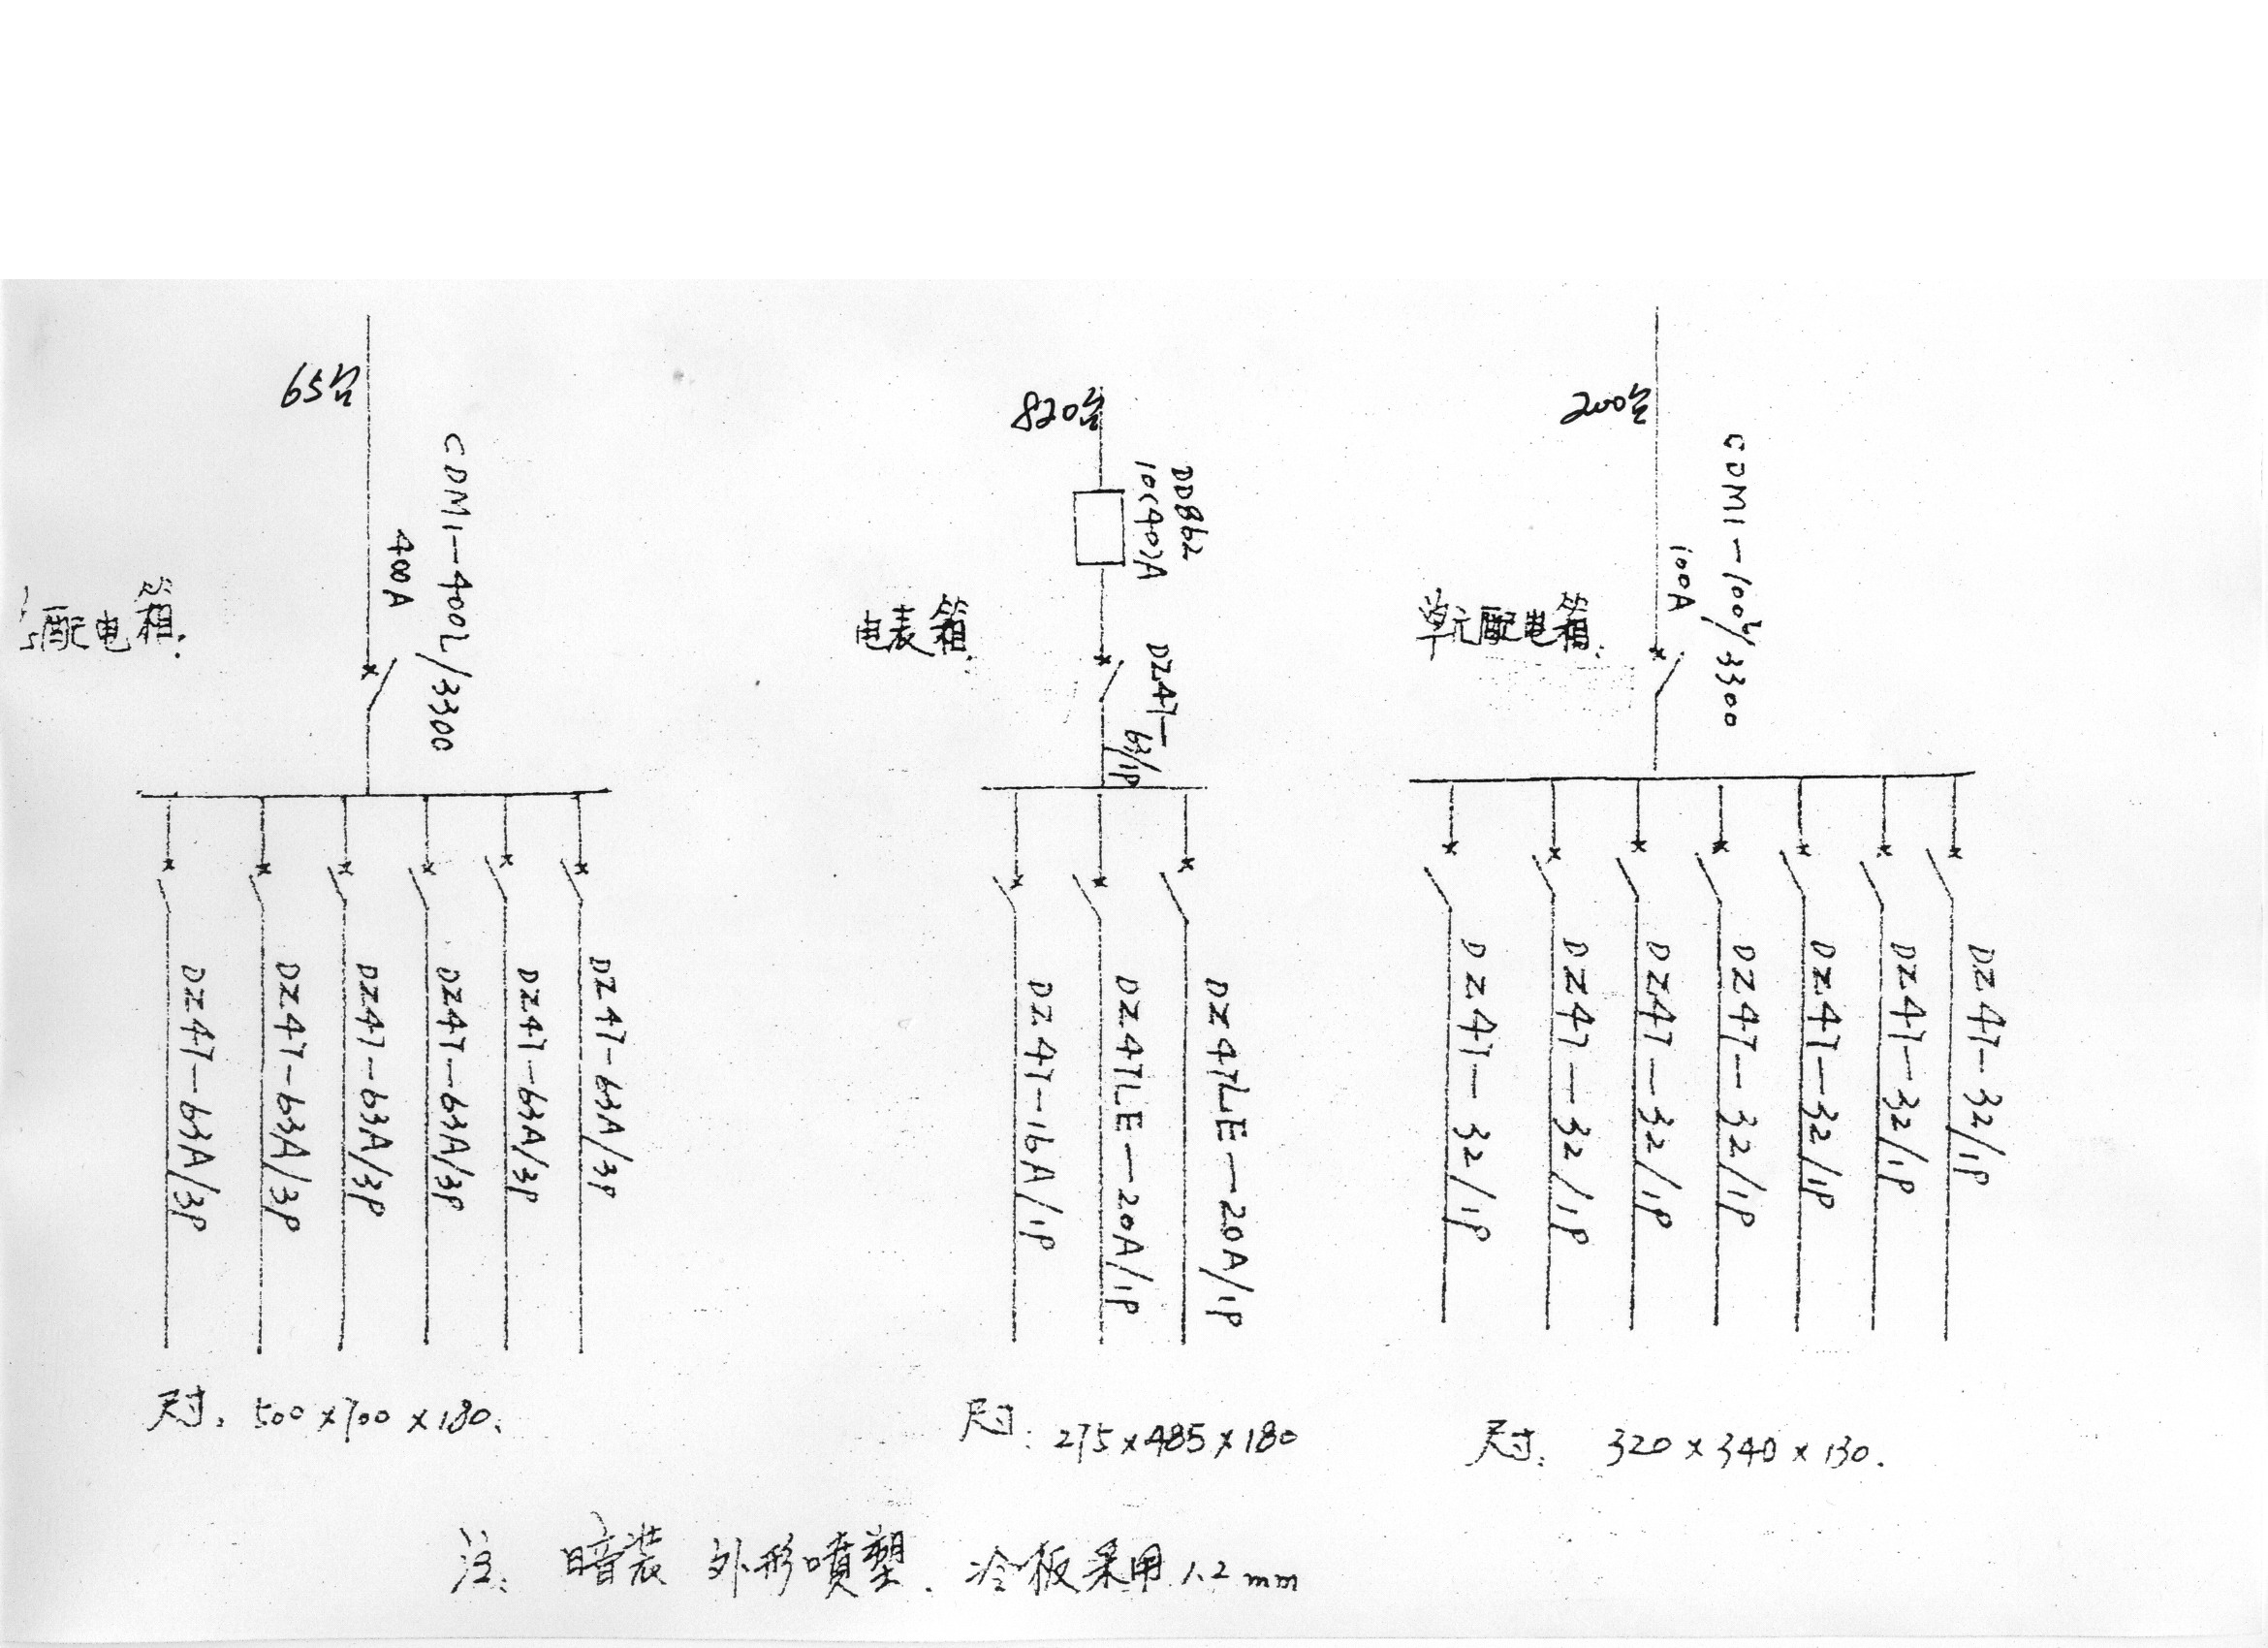 65台
CDM1-400L/3300
400A
配电箱.
DZ47-63A/3P
DZ47-63A/3P
DZ47-63A/3P
DZ47-63A/3P
DZ47-63A/3P
DZ47-63A/3P
尺寸. 500×700×180.
820台
DD862
10(40)A
电表箱.
DZ47-
63/1P
DZ47-16A/1P
DZ47LE-20A/1P
DZ47LE-20A/1P
尺寸: 275×485×180
200台
CDM1-100L/3300
100A
单元配电箱.
DZ47-32/1P
DZ47-32/1P
DZ47-32/1P
DZ47-32/1P
DZ47-32/1P
DZ47-32/1P
DZ47-32/1P
尺寸: 320×340×130.
注: 暗装 外形喷塑. 冷板采用1.2mm